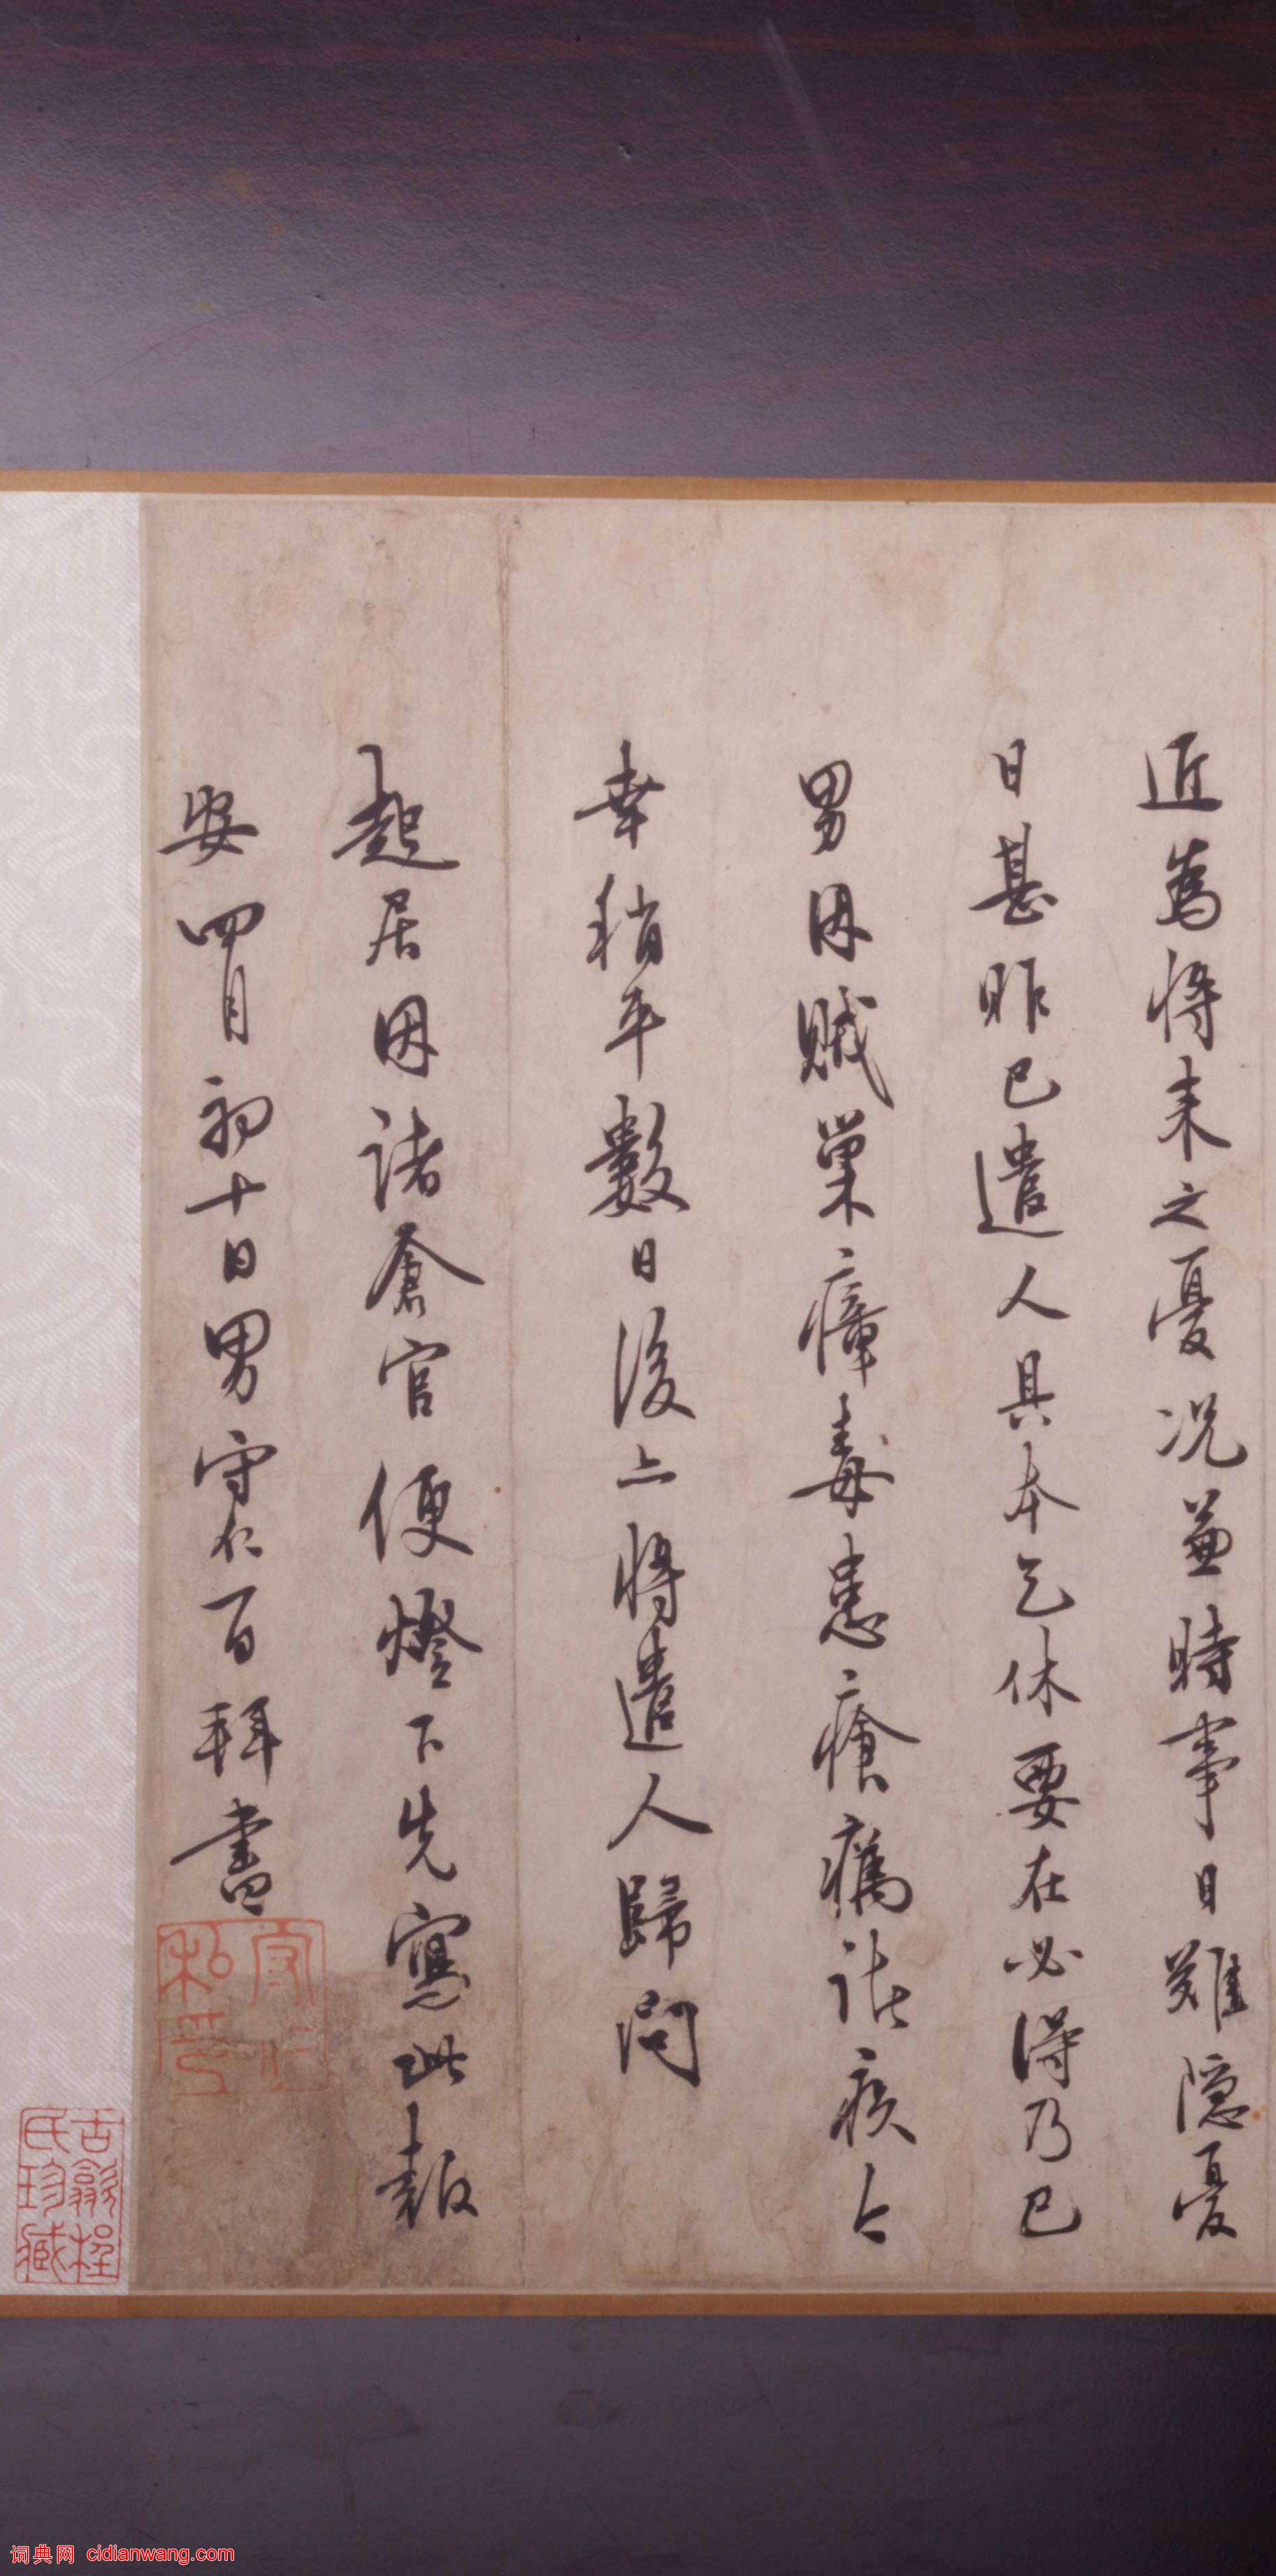 近為将来之憂况兼時事日難隠憂
日甚昨已遣人具本乞休要在必得乃已
男因賊巢瘴毒患瘡癘諸疾今
幸稍平數日後亦将遣人歸問
起居因諸倉官便燈下先寫此報
安四月初十日男守仁百拜書
守仁私印
古歙程氏珍藏
词典网 cidianwang.com